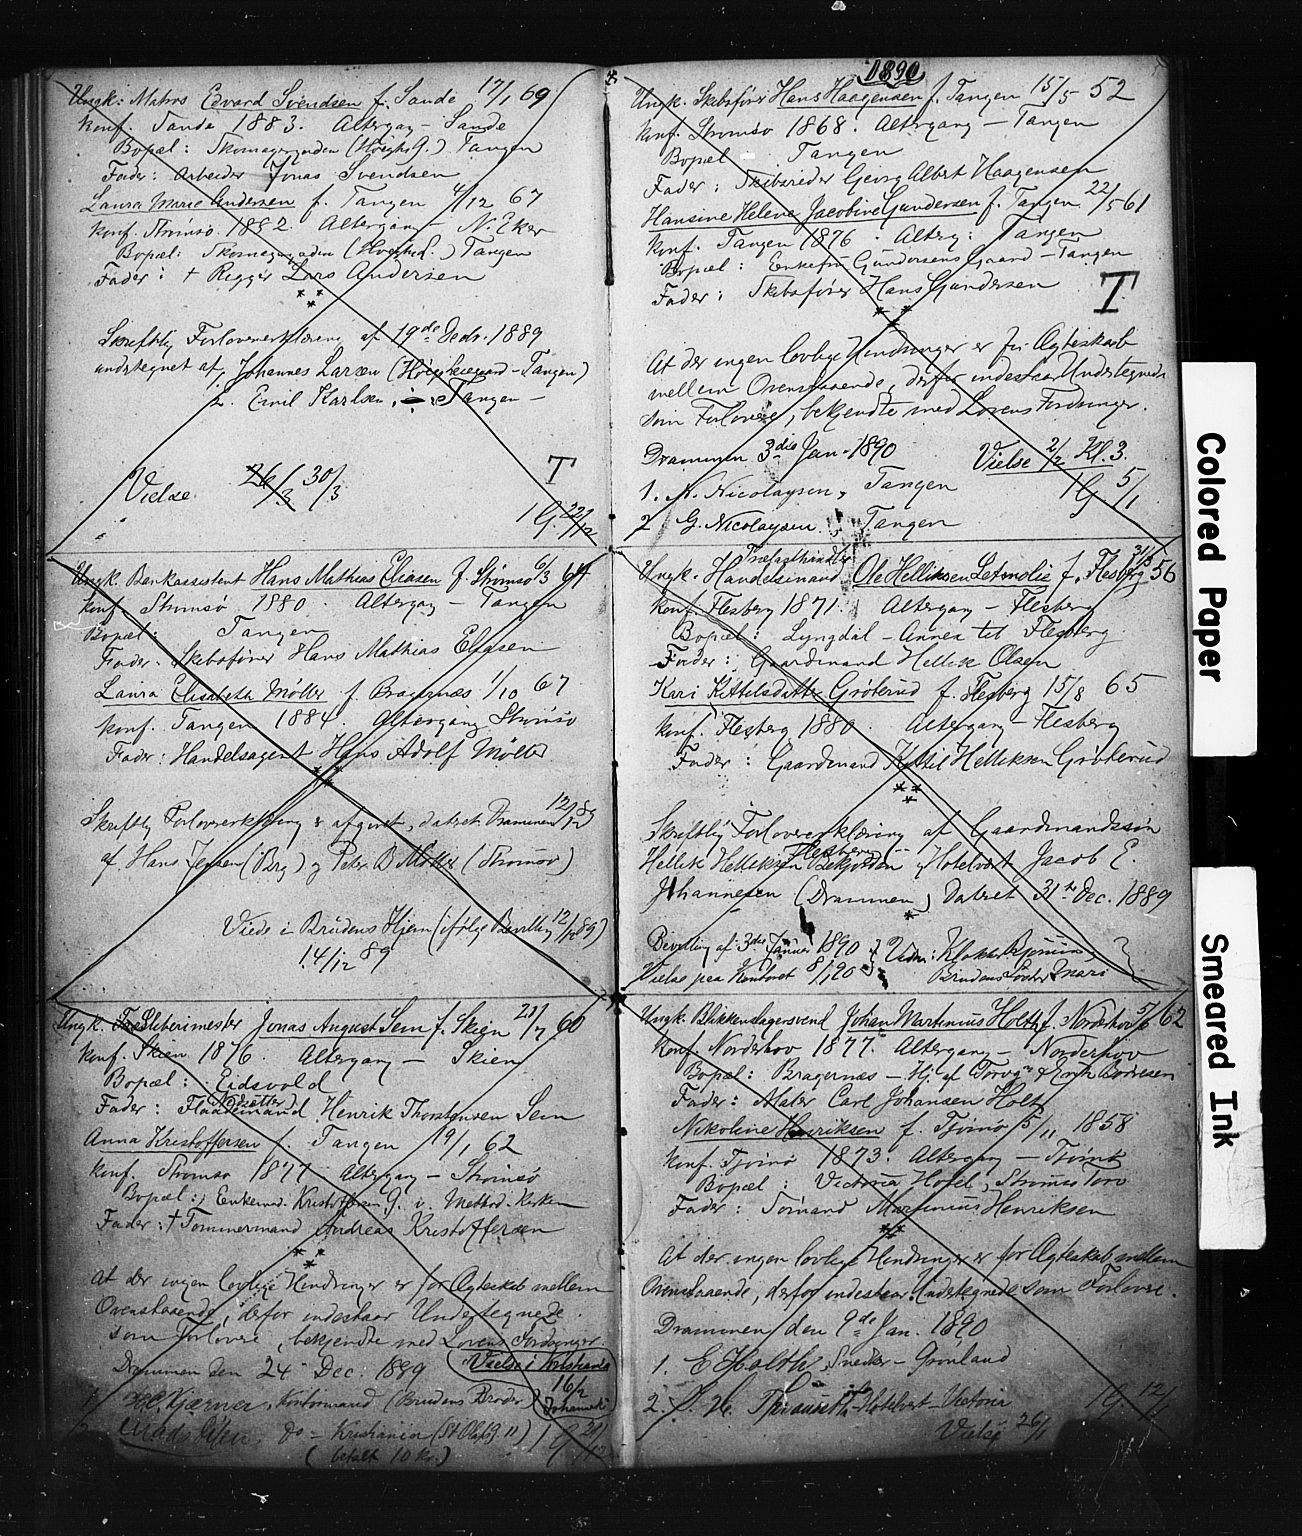 Ungk: Matros Edvard Svendsen f. Sande 17/1 69
konf. Sande 1883. Altergang – Sande
Bopæl: Skomagergaden (Høeghs G.) Tangen
Fader: Arbeider Jonas Svendsen
Laura Marie Andersen f. Tangen 4/12 67
konf. Strømsø 1882. Altergang – N. Eker
Bopæl: Skomagergaden Tangen
Fader: † Rigger Lars Andersen
Skriftlig Forlovererklæring af 19de Decbr. 1889
undertegnet af Johannes Larsen Tangen)
2. Emil Karlsen, Tangen –
T
Vielse 26/3 30/3
1 G. 22/12
Ungk. Bankassistent Hans Mathias Eliasen f. Strømsø 6/3 64
konf. Strømsø 1880. Altergang – Tangen
Bopæl: Tangen
Fader: Skibsfører Hans Mathias Eliasen
Laura Elisabeth Møller f. Bragernæs 1/10 67
konf. Tangen 1884. Altergang Strømsø
Fader: Handelsagent Hans Adolf Møller
Skriftlig Forlovererklæring afgivet, dateret Drammen 12/12 89
af Hans Jensen (Brg) og Peter B Møller (Strømsø)
Viede i Brudens Hjem (ifølge Bevilling 12/12 89)
14/12 89
Ungk. Træsliberimester Jonas August Sem f. Skien 21/7 60
konf. Skien 1876. Altergang – Skien
Bopæl: Eidsvold
Fader: Henrik Thorstensen Sem
Anna Kristoffersen f. Tangen 19/1 62
konf. Strømsø 1877 Altergang – Strømsø
Bopæl: Enkemd. Kristoffersen G. v. Method. Kirken
Fader: † Tømmermand Andreas Kristoffersen
At der ingen lovlige Hindringer er for Ægteskab mellem
Ovenstaaende, derfor indestaar Undertegnede
som Forlovere, bekjendte med Lovens Fordringer.
Drammen den 24 Dec. 1889 Vielse i Kristiania
16/2
1 Kjærner, Kontormand (Brudens Broder) Johannes k.
2 do – Kristiania (St Olafs G. 11) 1 G 21/12
(betalt 10 kr.)
1890
Ungk. Skibsfører Hans Haagensen f. Tangen 15/5 52
konf. Strømsø 1868. Altergang – Tangen
Bopæl Tangen
Fader: Skibsreder Georg Albert Haagensen
Hansine Helene Jacobine Gundersen f. Tangen 22/5 61
konf. Tangen 1876. Alterg: Tangen
Bopæl: Enkefru Gundersens Gaard – Tangen
Fader: Skibsfører Hans Gundersen
T
At der ingen lovlige Hindringer er for Ægteskab
mellem Ovenstaaende, derfor indestaar Undertegnede
som Forlovere, bekjendte med Lovens Fordringer.
Drammen 3die Jan. 1890 Vielse 2/2 Kl. 3.
1. N. Nicolaysen, Tangen 1 G 5/1
2 G. Nicolaysen. Tangen
Trælasthandler
Ungk. Handelsmand Ole Helliksen Letmolie f. Flesberg 31/3 56
konf. Flesberg 1871. Altergang – Flesberg
Bopæl: Lyngdal – Annex til Flesberg
Fader: Gaardmand Hellik Olsen
Kari Kittelsdatter Grøterud f. Flesberg 15/8 65
konf. Flesberg 1880. Altergang – Flesberg
Fader: Gaardmand Kittil Helliksen Grøterud
Skriftlig Forlovererklæring af Gaardmandssøn
Flesberg
Hellik Helliksen og Hotelvært Jacob E.
Johannesen (Drammen) Dateret 31te Dec. 1889
Bevilling af 3die Januar 1890 } Vidn: Klokker
Vielse paa Kontoret 8/1 90
Ungk. Blikkenslagersvend Johan Martinius Holth f. Norderhov 5/6 62
konf. Norderhov 1877. Altergang – Norderhov
Bopæl: Bragernæs – Hj. af Torvg. & Erik Børresens
Fader: Maler Carl Johansen Holth
Nikoline Henriksen f. Tjømø 5/11 1858
konf. Tjømø 1873. Altergang – Tjømø
Bopæl: Victoria Hotel, Strømsø Torv
Fader: Sømand Martinius Henriksen
At der ingen lovlige Hindringer er for Ægteskab mellem
Ovenstaaende, derfor indestaar Undertegnede som Forlovere.
Drammen den 9de Jan. 1890
1. E Holth, Snedker – Grønland
2. Hotelvært – Victoria 1 G. 12/1
Vielse 26/1
Colored Paper
Smeared Ink